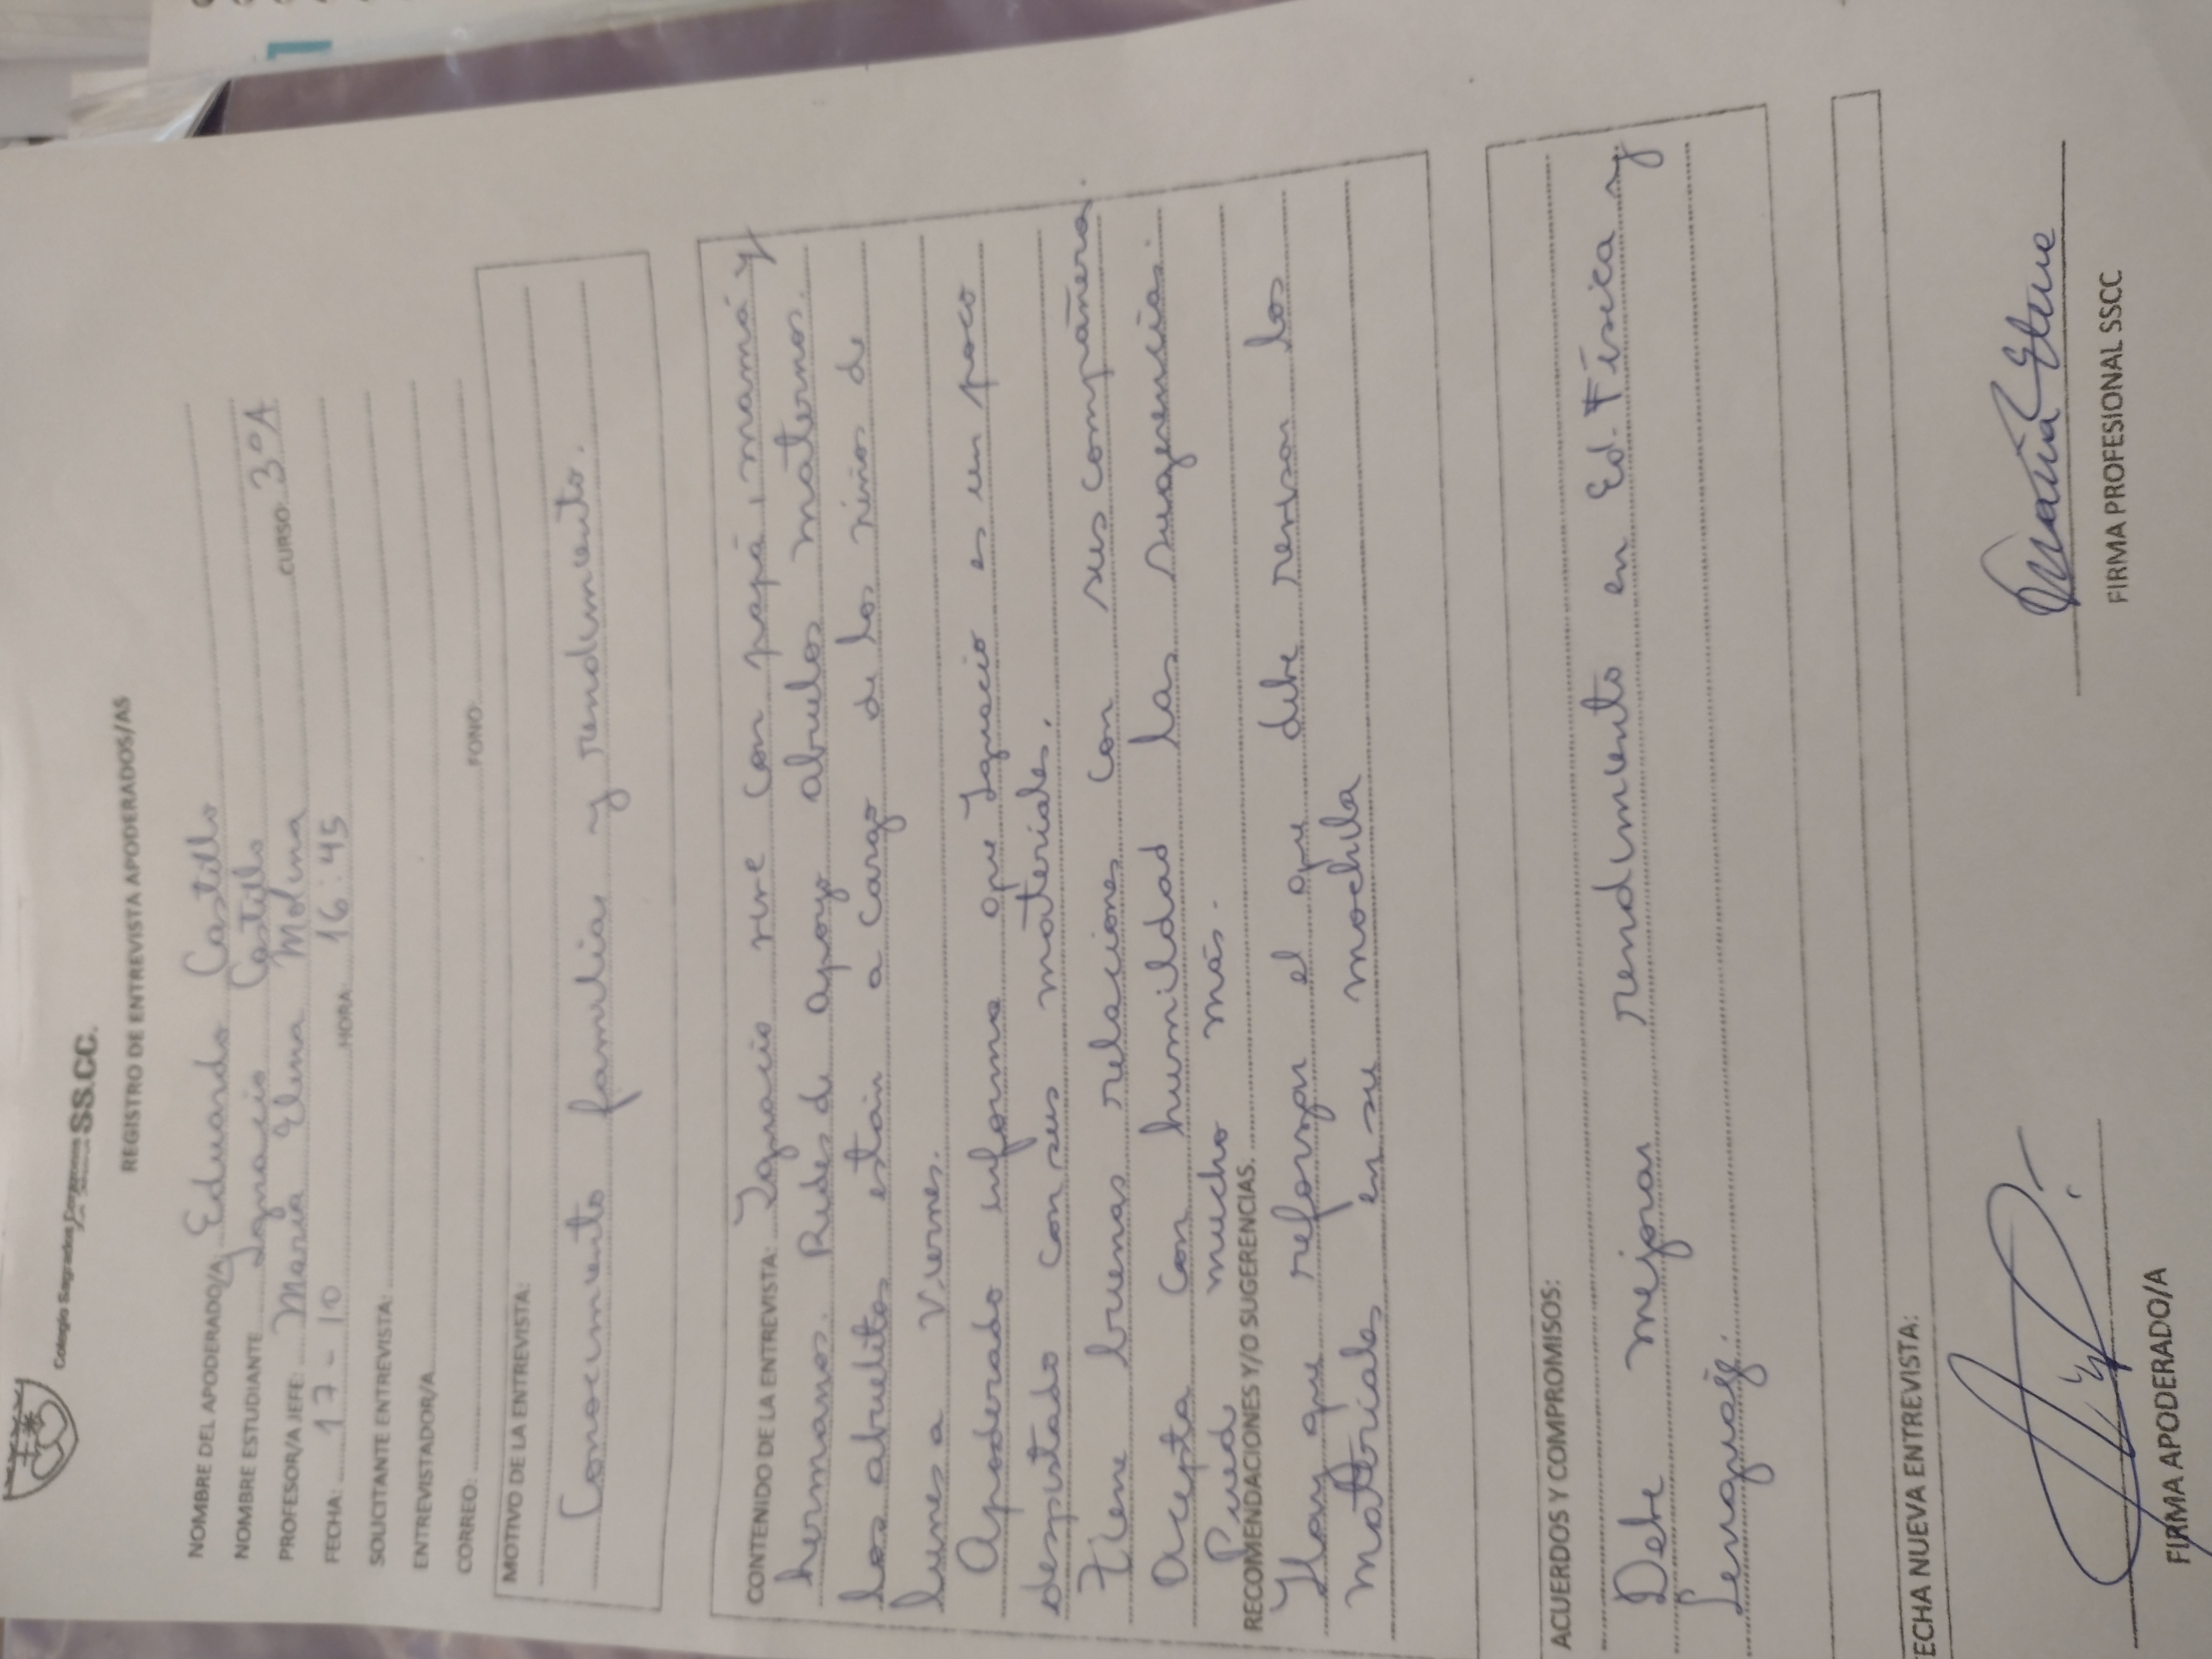 Colegio Sagrados Corazones SS.CC.
REGISTRO DE ENTREVISTA APODERADOS/AS
NOMBRE DEL APODERADO/A: Eduardo Castillo
NOMBRE ESTUDIANTE Ignacio Castillo
PROFESOR/A JEFE: Maria Elena Molina CURSO: 3°A
FECHA: 17-10 HORA 16:45
SOLICITANTE ENTREVISTA:
ENTREVISTADOR/A
CORREO: FONO:
MOTIVO DE LA ENTREVISTA:
Conocimiento familiar y rendimiento.
CONTENIDO DE LA ENTREVISTA: Ignacio vive con papá, mamá y
hermanos. Redes de apoyo abuelos maternos.
los abuelitos están a cargo de los niños de
lunes a viernes.
Apoderado informa que Ignacio es un poco
despistado con sus materiales.
Tiene buenas relaciones con sus compañeros.
Acepta con humildad las sugerencias.
Puede mucho más.
RECOMENDACIONES Y/O SUGERENCIAS.
Hay que reforzar el que debe revisar los
materiales en su mochila
ACUERDOS Y COMPROMISOS:
Debe mejorar rendimiento en Ed. Física y
Lenguaje.
FECHA NUEVA ENTREVISTA:
FIRMA APODERADO/A
María Elena
FIRMA PROFESIONAL SSCC